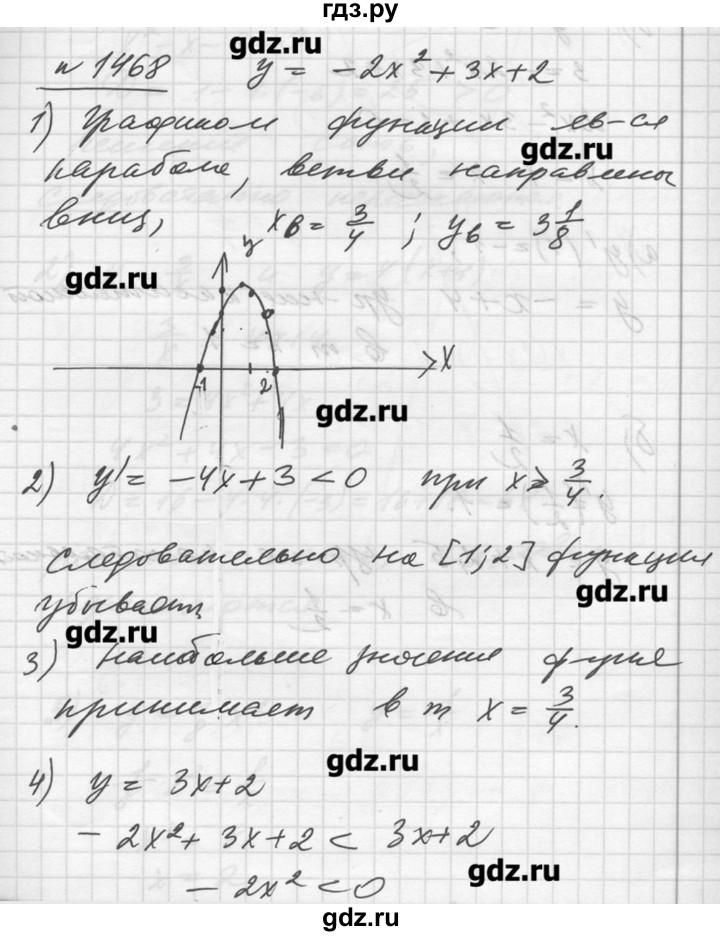 гдз.ру
gdz.ru
n 1468 y = -2x² + 3x + 2
1) Графиком функции яв-ся
gdz.ru
парабола, ветви направлены
вниз, xв = 3/4 ; yв = 3 1/8
gdz.ru
y
x
-1 2
gdz.ru
2) y' = -4x + 3 < 0 при x ≥ 3/4.
Следовательно на [1; 2] функция
gdz.ru
убывает
gdz.ru
3) Наибольшее значение ф-ция
принимает в т x = 3/4.
gdz.ru
4) y = 3x + 2
-2x² + 3x + 2 < 3x + 2
gdz.ru
-2x² < 0
gdz.ru